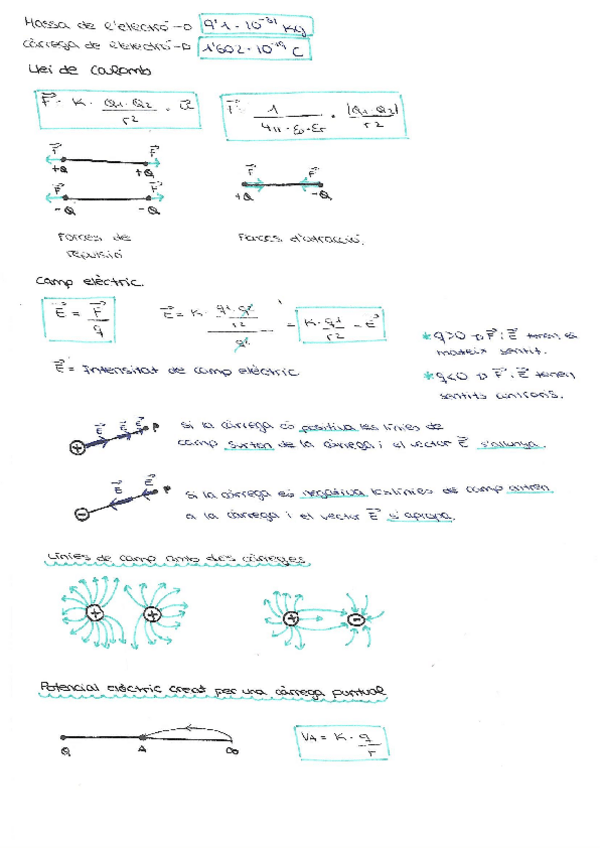 Massa de l'electró → 9'1 · 10⁻³¹ Kg
càrrega de l'electró → 1'602 · 10⁻¹⁹ C
Llei de Coulomb
F = K · Q1 · Q2 / r² · u
F = 1 / 4π · ε0 · εr · |Q1 · Q2| / r²
F F F F
+Q +Q +Q -Q
F F
-Q -Q
Forces de repulsió
Forces d'atracció.
Camp elèctric
E = F / q
E = K · q' · q' / r² / q' = K · q1 / r² = E
* q>0 → F i E tenen el
mateix sentit.
E = Intensitat de camp elèctric
* q<0 → F i E tenen
sentits contraris.
E E E P
+
si la càrrega és positiva les línies de
camp surten de la càrrega i el vector E s'allunya.
E E P
-
si la càrrega es negativa les línies de camp entren
a la càrrega i el vector E s'apropa.
Línies de camp amb dos càrregues
+ + + -
Potencial elèctric creat per una càrrega puntual
Q A ∞
VA = K · q / r